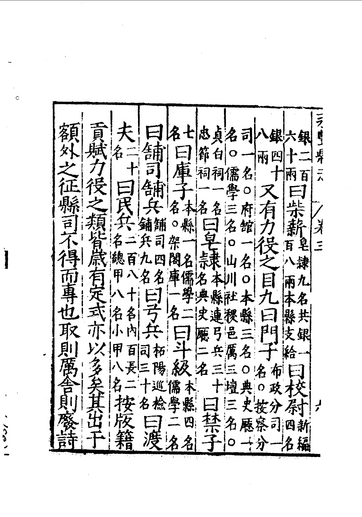 銀二百六十兩曰柴薪皂隸九名共銀一百八兩本縣支給曰校尉新編四名
銀四十八兩又有力役之目九曰門子布政分司一名○按察分
司一名○府館一名○本縣三名○典史廳一名○儒學三名○山川社稷邑厲三壇三名○
貞白祠一名忠節祠一名曰皂隸本縣連弓兵三十名典史廳二名曰禁子
七名曰庫子本縣一名儒學二名○架閣庫一名曰斗級本縣四名儒學二名
曰舖司舖兵舖司四名舖兵九名曰弓兵柘陽巡檢司三十名曰渡
夫二十名曰民兵二百八十名內百長二名總甲八名小甲八名按版籍
貢賦力役之類皆歲有定式亦以多矣其出于
額外之征縣司不得而專也取則厲舍則廢詩